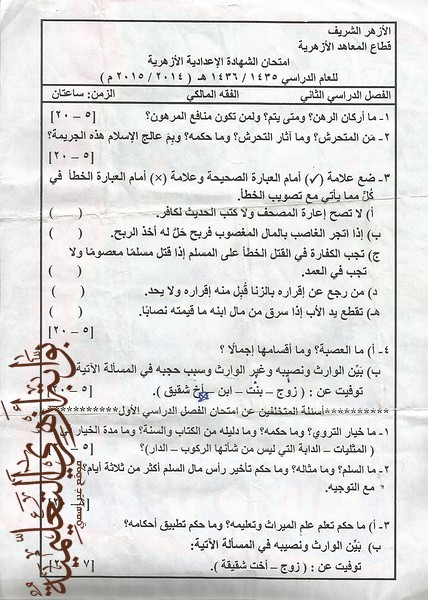 الأزهر الشريف
قطاع المعاهد الأزهرية
امتحان الشهادة الإعدادية الأزهرية
للعام الدراسي ١٤٣٥ / ١٤٣٦ هـ ( ٢٠١٤ / ٢٠١٥ م )
الفصل الدراسي الثاني الفقه المالكي الزمن: ساعتان
١- ما أركان الرهن؟ ومتى يتم؟ ولمن تكون منافع المرهون؟ [٥ – ٢٠]
٢- مَن المتحرش؟ وما آثار التحرش؟ وما حكمه؟ وبِمَ عالج الإسلام هذه الجريمة؟
[٥ – ٢٠]
٣- ضع علامة (✓) أمام العبارة الصحيحة وعلامة (×) أمام العبارة الخطأ في
كُلٍّ مما يأتي مع تصويب الخطأ.
أ) لا تصح إعارة المصحف ولا كتب الحديث لكافر. ( )
ب) إذا اتجر الغاصب بالمال المغصوب فربح حَلَّ له أخذ الربح. ( )
ج) تجب الكفارة في القتل الخطأ على المسلم إذا قتل مسلمًا معصومًا ولا
تجب في العمد. ( )
د) من رجع عن إقراره بالزنا قُبِل منه إقراره ولا يحد. ( )
هـ) تقطع يد الأب إذا سرق من مال ابنه ما قيمته نصابًا. ( )
[٥ – ٢٠]
٤- أ) ما العصبة؟ وما أقسامها إجمالًا ؟
ب) بَيِّن الوارث ونصيبه وغير الوارث وسبب حجبه في المسألة الآتية
توفيت عن : ( زوج – بنت – ابن – أخ شقيق ).
**********أسئلة المتخلفين عن امتحان الفصل الدراسي الأول**********
١- ما خيار التروي؟ وما حكمه؟ وما دليله من الكتاب والسنة؟ وما مدة الخيار
( المثليات – الدابة التي ليس من شأنها الركوب – الدار)؟
٢- ما السلم؟ وما مثاله؟ وما حكم تأخير رأس مال السلم أكثر من ثلاثة أيام؟
مع التوجيه.
٣- أ) ما حكم تعلم علم الميراث وتعليمه؟ وما حكم تطبيق أحكامه؟
ب) بَيِّن الوارث ونصيبه في المسألة الآتية:
توفيت عن : ( زوج – أخت شقيقة ).
بوابة أزهري التعليمية
موقع غير رسمي